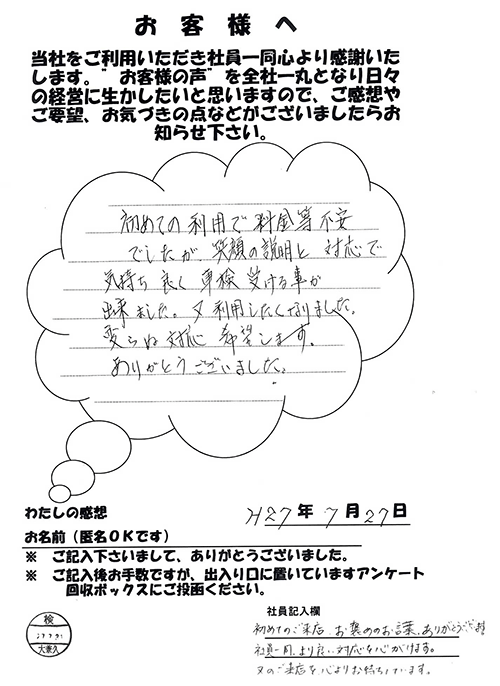 お客様へ
当社をご利用いただき社員一同心より感謝いた
します。"お客様の声"を全社一丸となり日々
の経営に生かしたいと思いますので、ご感想や
ご要望、お気づきの点などがございましたらお
知らせ下さい。
初めての利用で料金等不安
でしたが、笑顔の説明と対応で
気持ち良く車検受ける車が
出来ました。又利用したくなりました。
変らぬ対応希望します。
ありがとうございました。
わたしの感想
H27年7月27日
お名前（匿名OKです）
※ ご記入下さいまして、ありがとうございました。
※ ご記入後お手数ですが、出入り口に置いていますアンケート
回収ボックスにご投函ください。
社員記入欄
初めてのご来店、お褒めのお言葉、ありがとうございます
社員一同、より良い対応を心がけます。
又のご来店を心よりお待ちしています。
検
大兼久